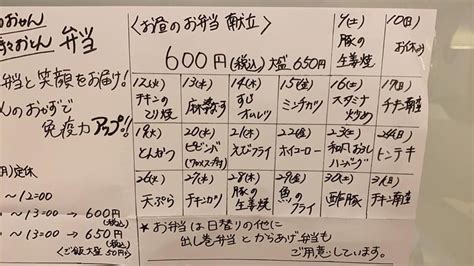 弁当
弁当と笑顔をお届け!
のおかずで
免疫力アップ!!
定休
～12:00
～13:00→600円
(税込)
～13:00→650円
(ご飯大盛50円)
<お昼のお弁当献立>
600円(税込)大盛650円
9(土)
豚の
生姜焼
10(日)
お休み
12(火)
チキンの
焼
13(水)
麻婆なす
14(木)
オムレツ
15(金)
ミンチカツ
16(土)
スタミナ
炒め
17(日)
チキン南蛮
19(火)
とんかつ
20(水)
ビビンバ
21(木)
エビフライ
22(金)
ホイコーロー
23(土)
和風おろし
ハンバーグ
24(日)
トンテキ
26(火)
天ぷら
27(水)
チキンカツ
28(木)
豚の
生姜焼
29(金)
魚の
フライ
30(土)
酢豚
31(日)
チキン南蛮
*お弁当は日替りの他に
出し巻弁当とからあげ弁当も
ご用意しています。